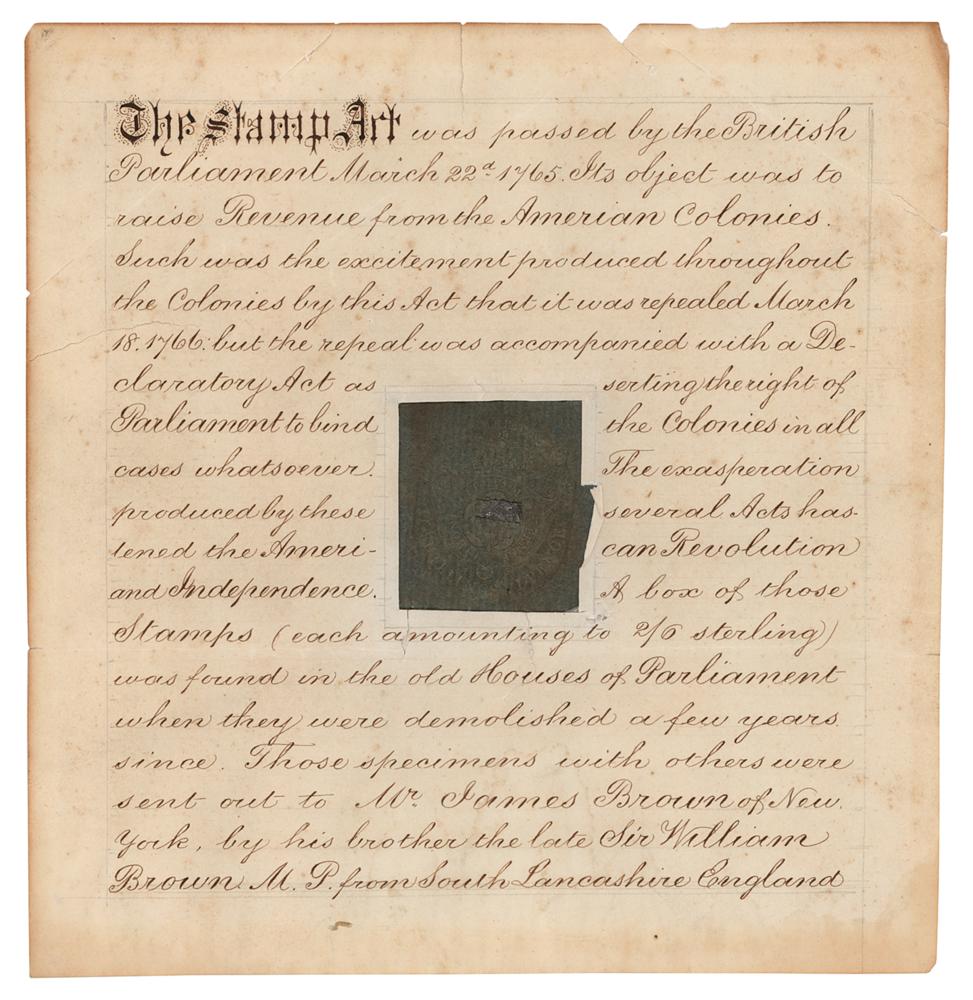 The Stamp Act was passed by the British
Parliament March 22d 1765. Its object was to
raise Revenue from the Amerian Colonies.
Such was the excitement produced throughout
the Colonies by this Act that it was repealed March
18. 1766: but the repeal was accompanied with a De-
claratory Act as serting the right of
Parliament to bind the Colonies in all
cases whatsoever. The exasperation
produced by these several Acts has-
tened the Ameri- can Revolution
and Independence. A box of those
Stamps (each amounting to 2/6 sterling)
was found in the old Houses of Parliament
when they were demolished a few years
since. Those specimens with others were
sent out to Mr. James Brown of New
York, by his brother the late Sir William
Brown M. P. from South Lancashire England